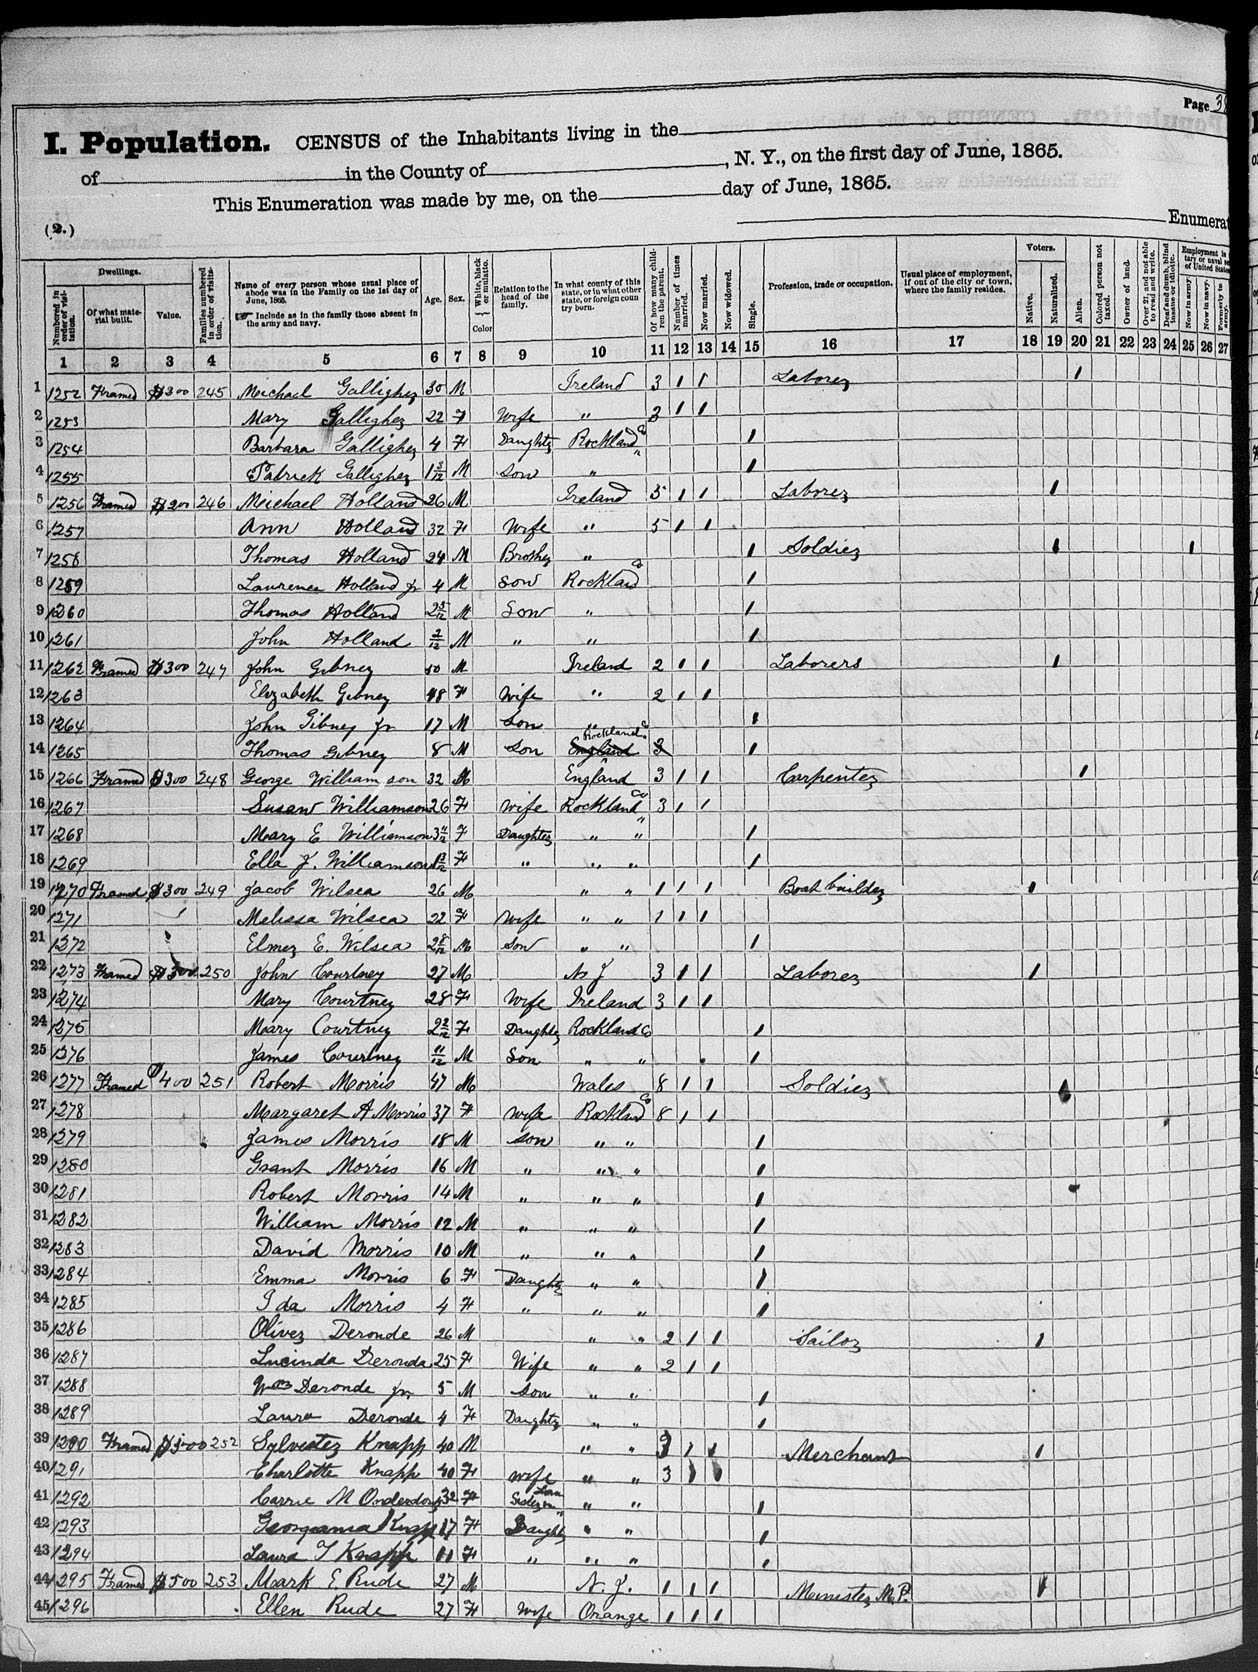 Page 3
I. Population. CENSUS of the Inhabitants living in the
of in the County of , N. Y., on the first day of June, 1865.
This Enumeration was made by me, on the day of June, 1865.
(2.)
Enumerat
Numbered in order of visitation. Dwellings. Of what material built. Value. Families numbered in order of visitation. Name of every person whose usual place of abode was in the Family on the 1st day of June, 1865. Include as in the family those absent in the army and navy. Age. Sex. White, black or mulatto. Color Relation to the head of the family. In what county of this state, or in what other state, or foreign country born. Of how many children the parent. Number of times married. Now married. Now widowed. Single. Profession, trade or occupation. Usual place of employment, if out of the city or town, where the family resides. Voters. Native. Naturalized. Alien. Colored person not taxed. Owner of land. Over 21, and not able to read and write. Deaf and dumb, blind insane or idiotic. Now in army Now in navy. Formerly in army.
1 2 3 4 5 6 7 8 9 10 11 12 13 14 15 16 17 18 19 20 21 22 23 24 25 26 27
1 1252 Framed $300 245 Michael Galligher 30 M Ireland 3 1 1 Laborer 1
2 1253 Mary Galligher 22 F Wife " 3 1 1
3 1254 Barbara Galligher 4 F Daughter Rockland Co 1
4 1255 Patrick Galligher 1 M Son " 1
5 1256 Framed $200 246 Michael Holland 26 M Ireland 5 1 1 Laborer 1
6 1257 Ann Holland 32 F Wife " 5 1 1
7 1258 Thomas Holland 24 M Brother " 1 Soldier 1 1
8 1259 Laurence Holland Jr 4 M Son Rockland Co 1
9 1260 Thomas Holland 2 5/12 M Son " 1
10 1261 John Holland 2/12 M " " 1
11 1262 Framed $300 247 John Gibney 50 M Ireland 2 1 1 Laborers 1
12 1263 Elizabeth Gibney 48 F Wife " 2 1 1
13 1264 John Gibney Jr 17 M Son " 1
14 1265 Thomas Gibney 8 M Son England Rockland Co 3 1
15 1266 Framed $300 248 George Williamson 32 M England 3 1 1 Carpenter 1
16 1267 Susan Williamson 26 F Wife Rockland Co 3 1 1
17 1268 Mary E Williamson 3 F Daughter " " 1
18 1269 Ella J. Williamson F " " " 1
19 1270 Framed $300 249 Jacob Wilsea 26 M " " 1 1 1 Boat builder 1
20 1271 Melissa Wilsea 22 F Wife " " 1 1 1
21 1272 Elmer E. Wilsea 2 8/12 M Son " " 1
22 1273 Framed $300 250 John Courtney 27 M N J 3 1 1 Laborer 1
23 1274 Mary Courtney 28 F Wife Ireland 3 1 1
24 1275 Mary Courtney 2 F Daughter Rockland Co 1
25 1276 James Courtney 11/12 M Son " " 1
26 1277 Framed $400 251 Robert Morris 47 M Wales 8 1 1 Soldier
27 1278 Margaret A Morris 37 F Wife Rockland Co 8 1 1
28 1279 James Morris 18 M Son " " 1
29 1280 Grant Morris 16 M " " " 1
30 1281 Robert Morris 14 M " " " 1
31 1282 William Morris 12 M " " " 1
32 1283 David Morris 10 M " " " 1
33 1284 Emma Morris 6 F Daughter " " 1
34 1285 Ida Morris 4 F " " " 1
35 1286 Oliver Deronde 26 M " " 2 1 1 Sailor 1
36 1287 Lucinda Deronda 25 F Wife " " 2 1 1
37 1288 Wm Deronde Jr 5 M Son " " 1
38 1289 Laura Deronde 4 F Daughter " " 1
39 1290 Framed 252 Sylvester Knapp 40 M " " 3 1 1 Merchant 1
40 1291 Charlotte Knapp 40 F Wife " " 3 1 1
41 1292 Carrie M Onderdonk 32 F Sister in Law " " 1
42 1293 Georgeanna Knapp 17 F Daughter " " 1
43 1294 Laura J Knapp 11 F " " " 1
44 1295 Framed $500 253 Mark E Rude 27 M N. J. 1 1 1 Minister M.P. 1
45 1296 Ellen Rude 27 F Wife Orange 1 1 1